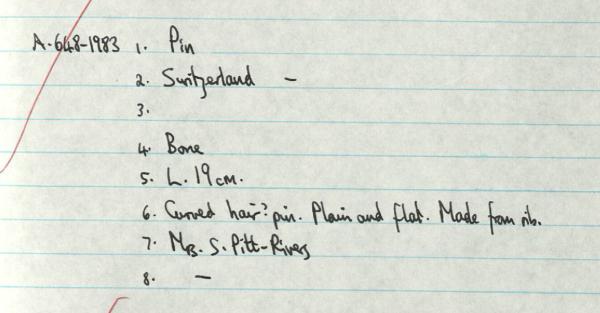 A.648-1983 1. Pin
2. Switzerland –
3.
4. Bone
5. L. 19cm.
6. Curved hair? pin. Plain and flat. Made from rib.
7. Mrs. S. Pitt-Rivers
8. –